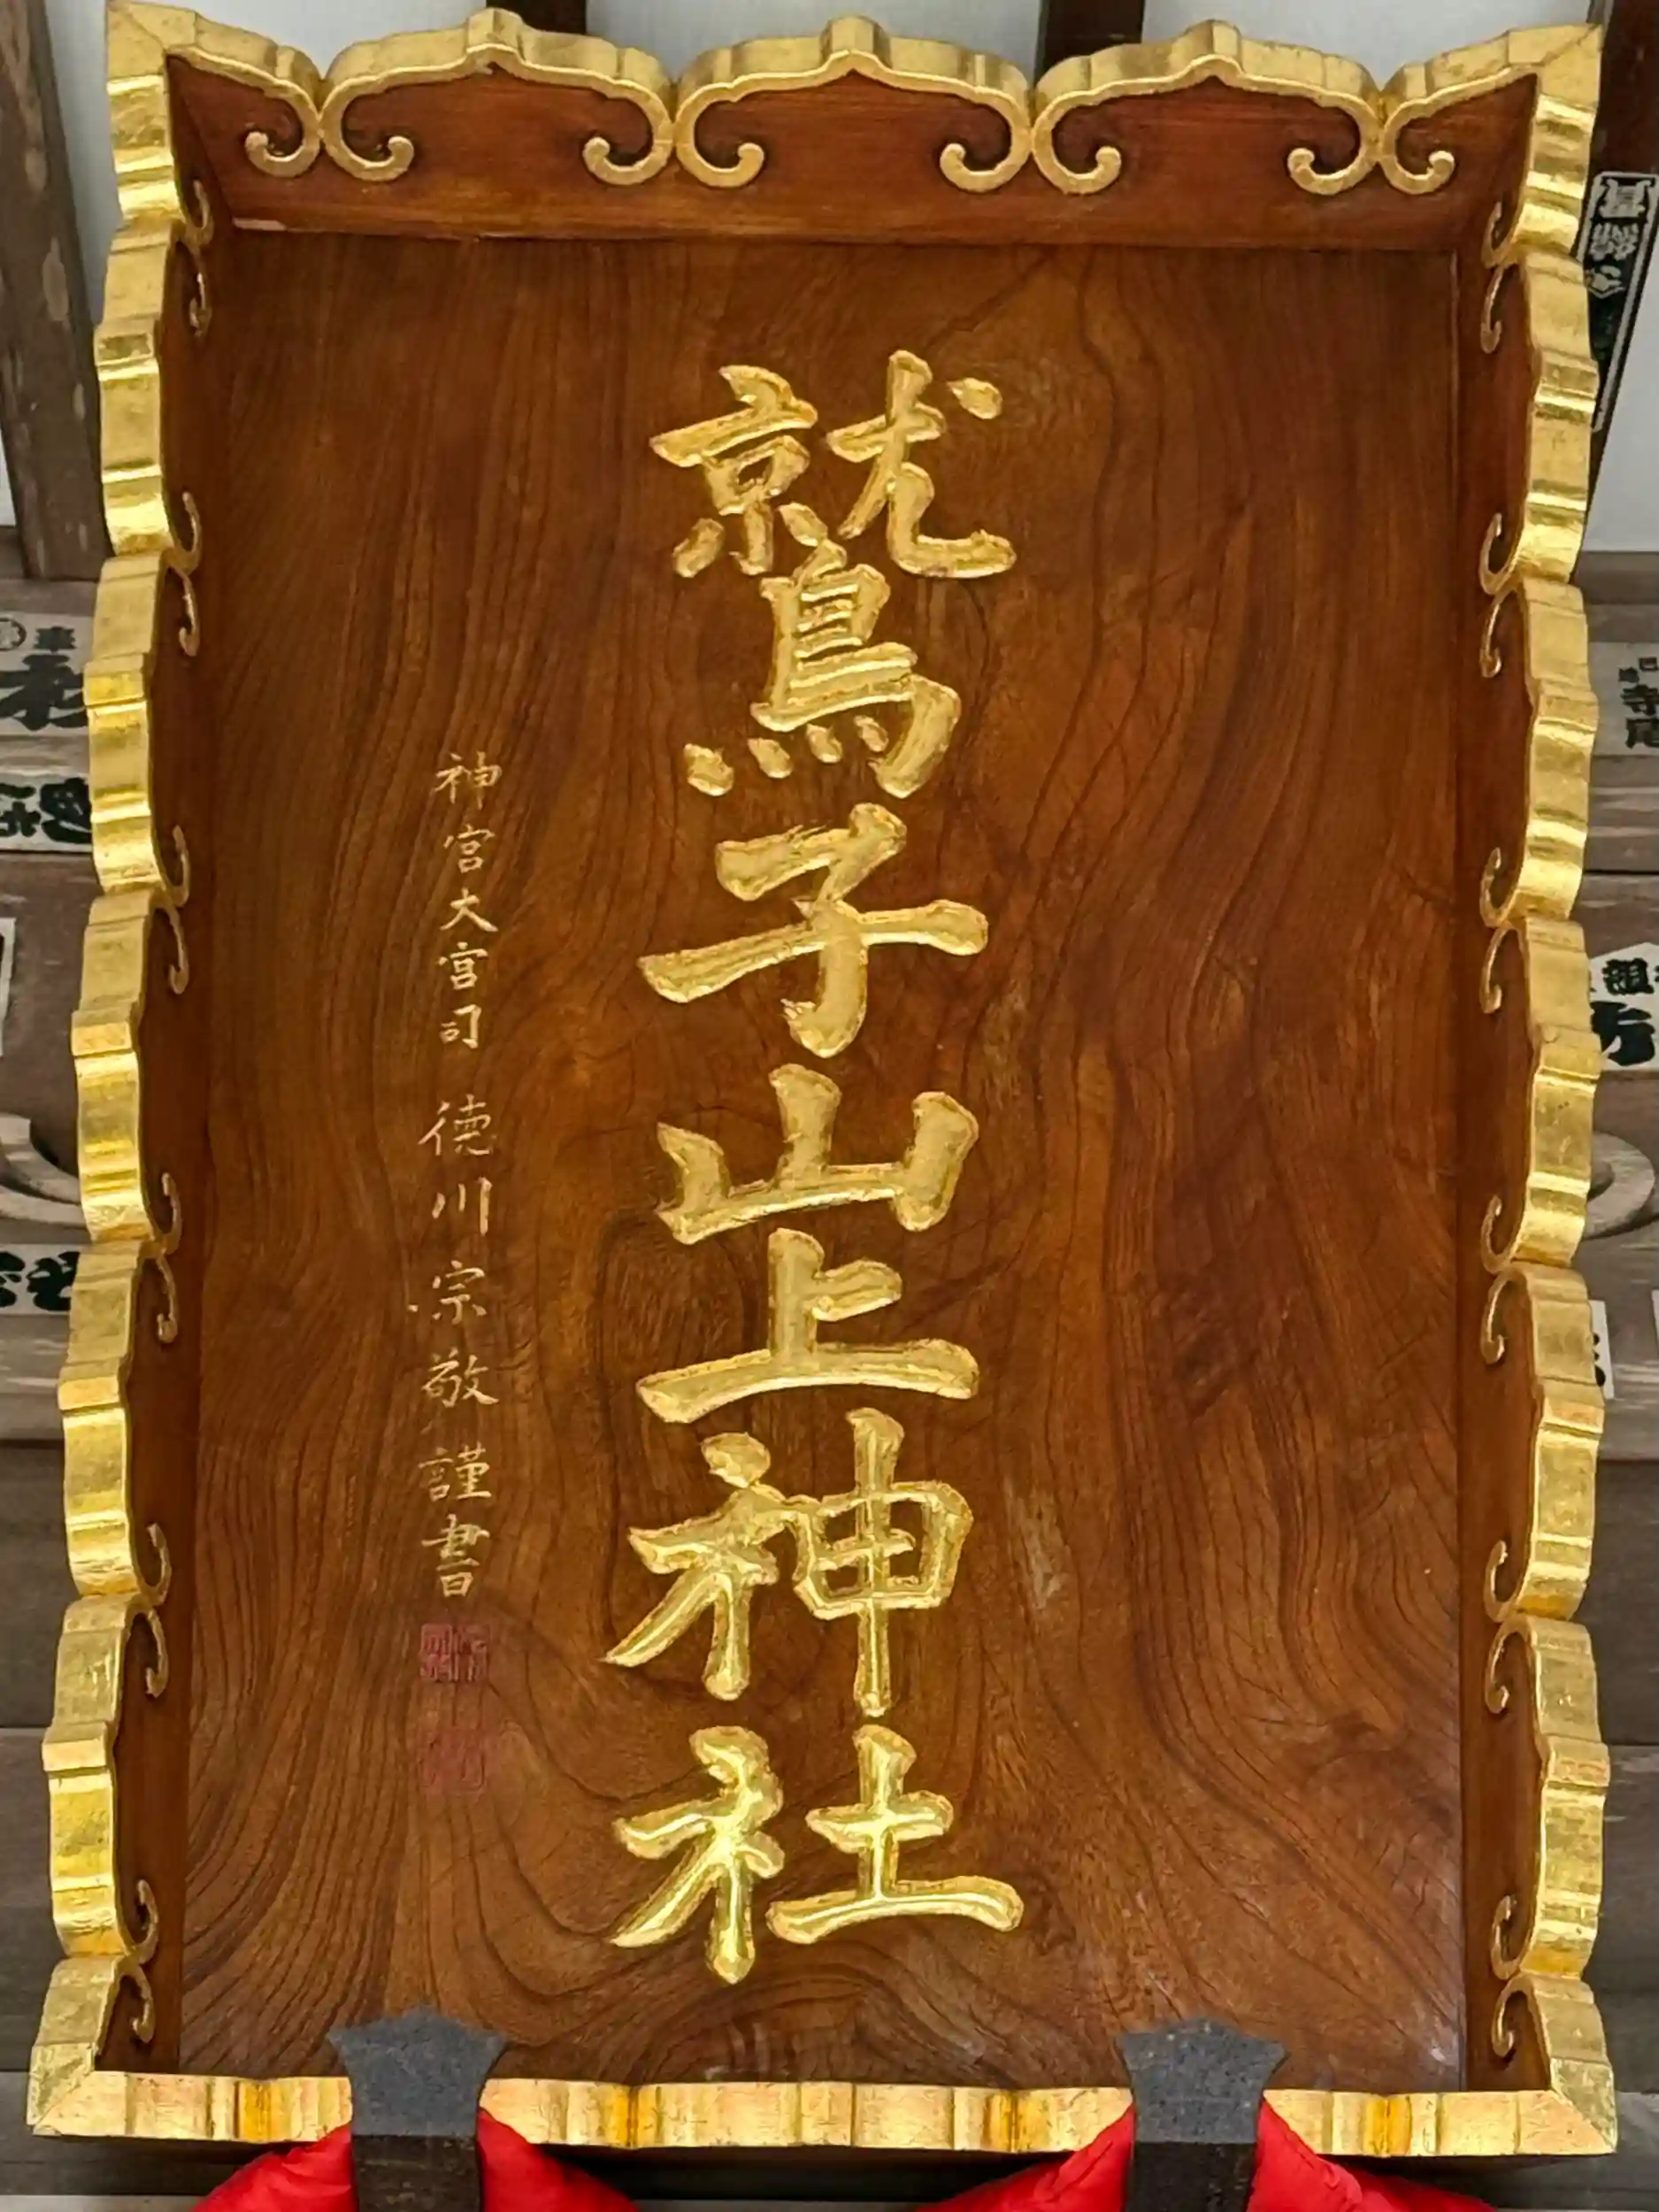 鷲子山上神社
神宮大宮司 徳川宗敬謹書